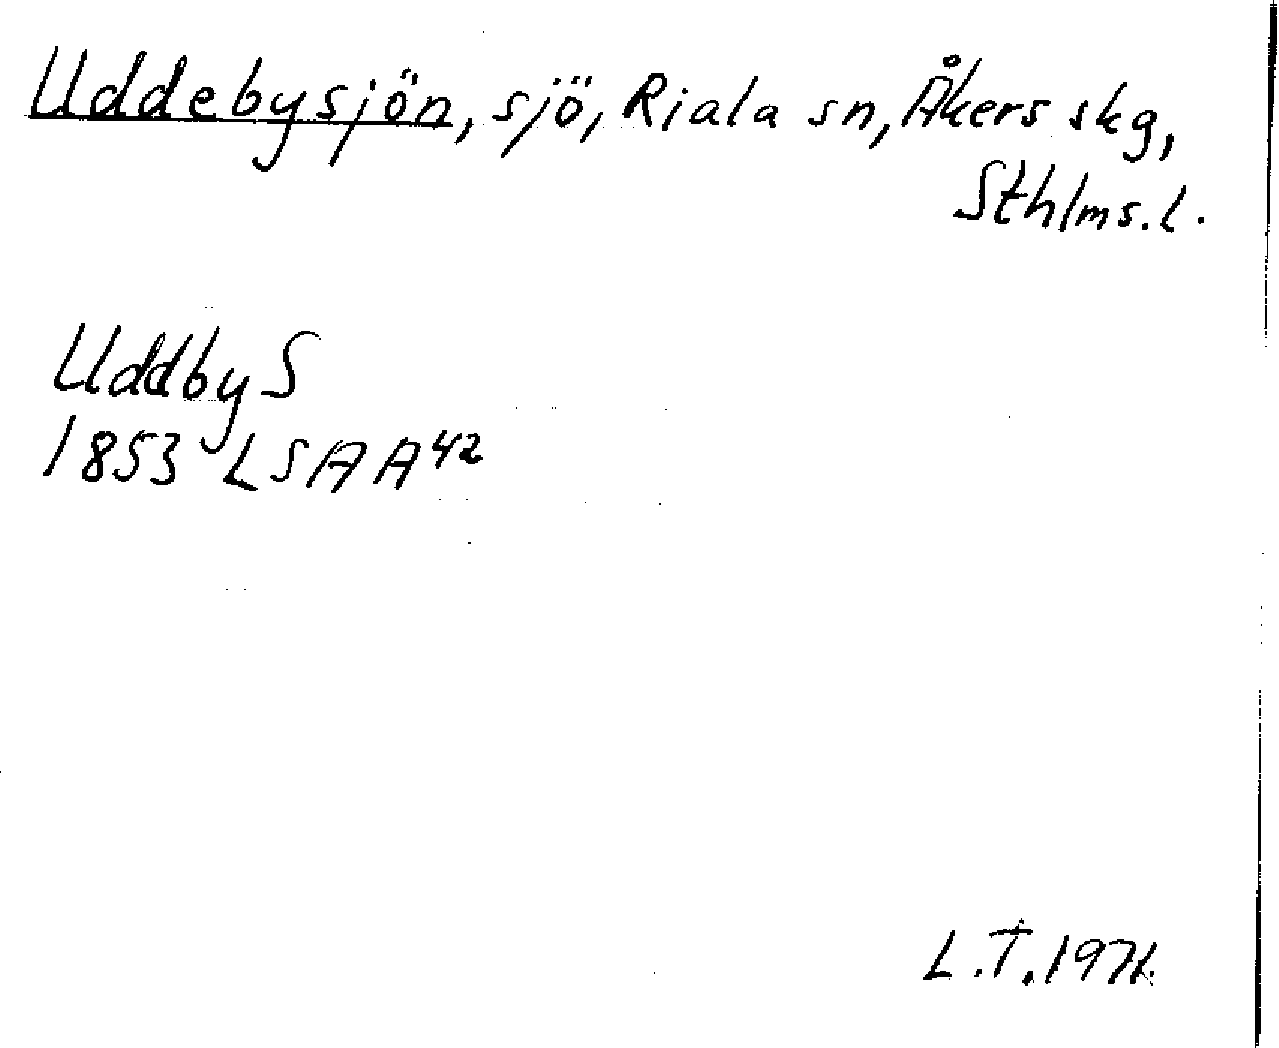 Uddebysjön, sjö, Riala sn, Åkers skg,
Sthlms. l.
Uddby S
1853 LSA A42
L.T. 1971.